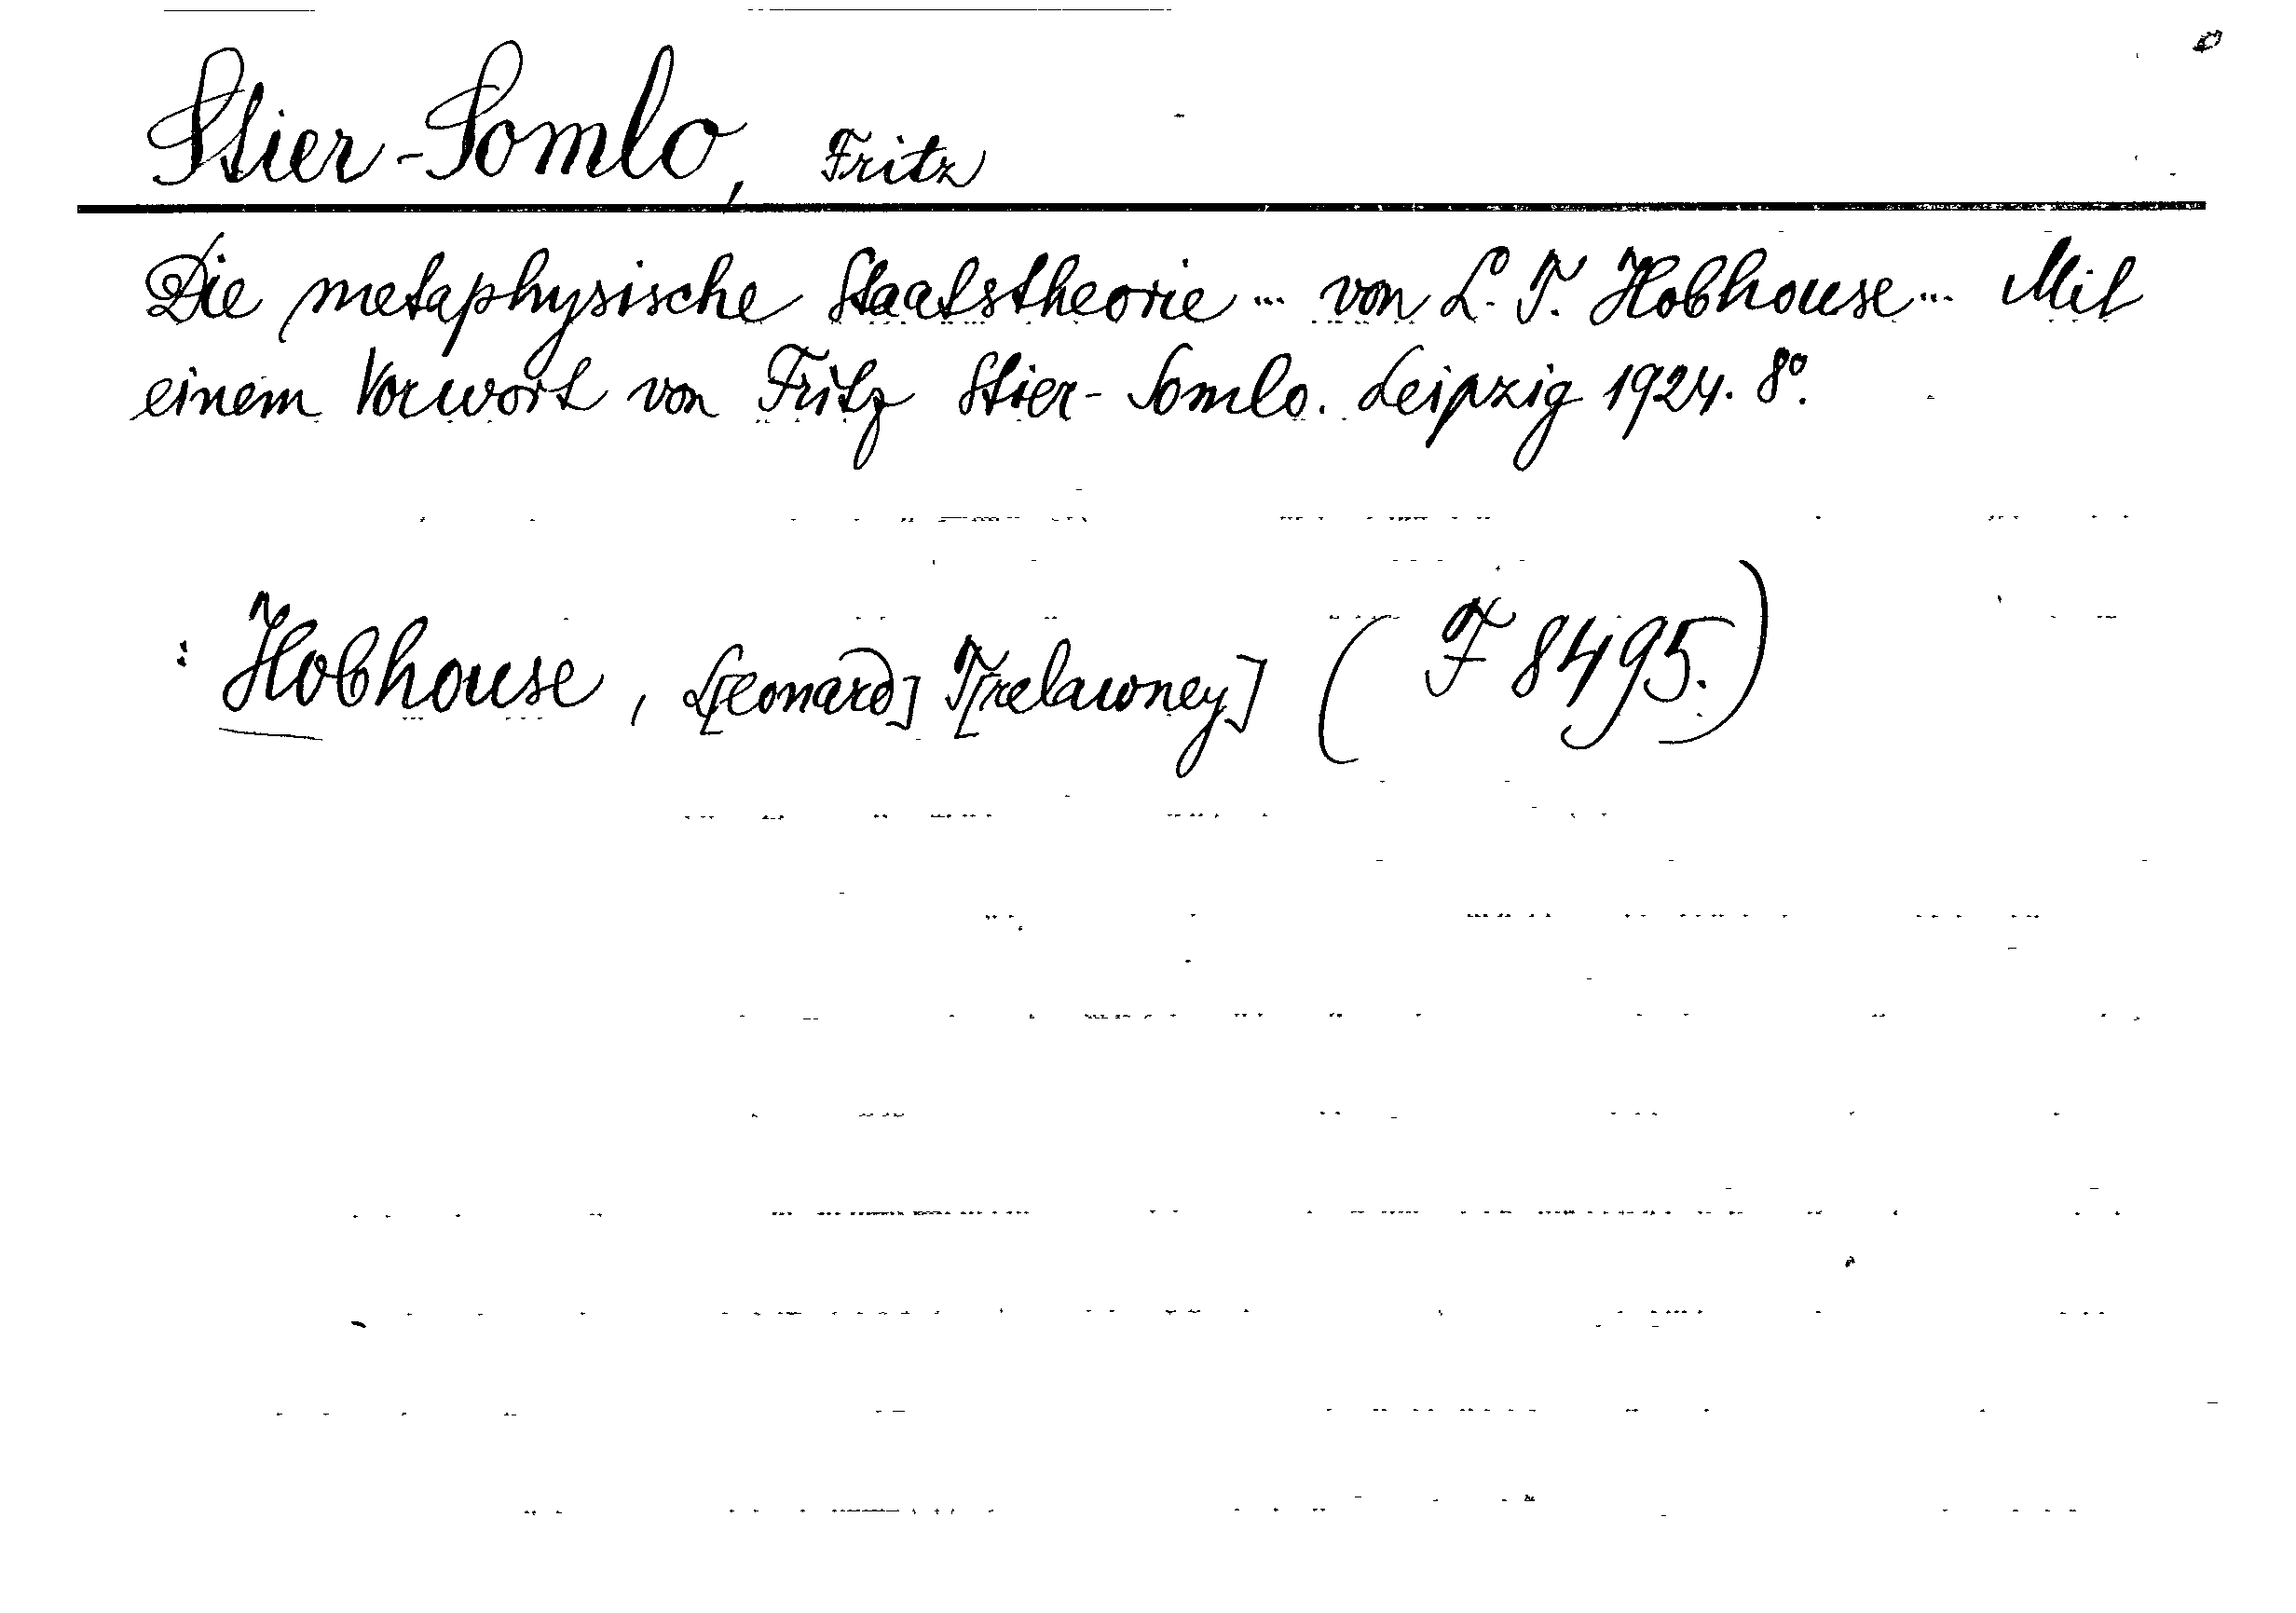 Stier-Somlo, Fritz
Die metaphysische Staatstheorie ... von L. T. Hobhouse ... Mit
einem Vorwort von Fritz Stier-Somlo. Leipzig 1924. 8°.
: Hobhouse, L[eonard] T[relawney] (F 8495.)